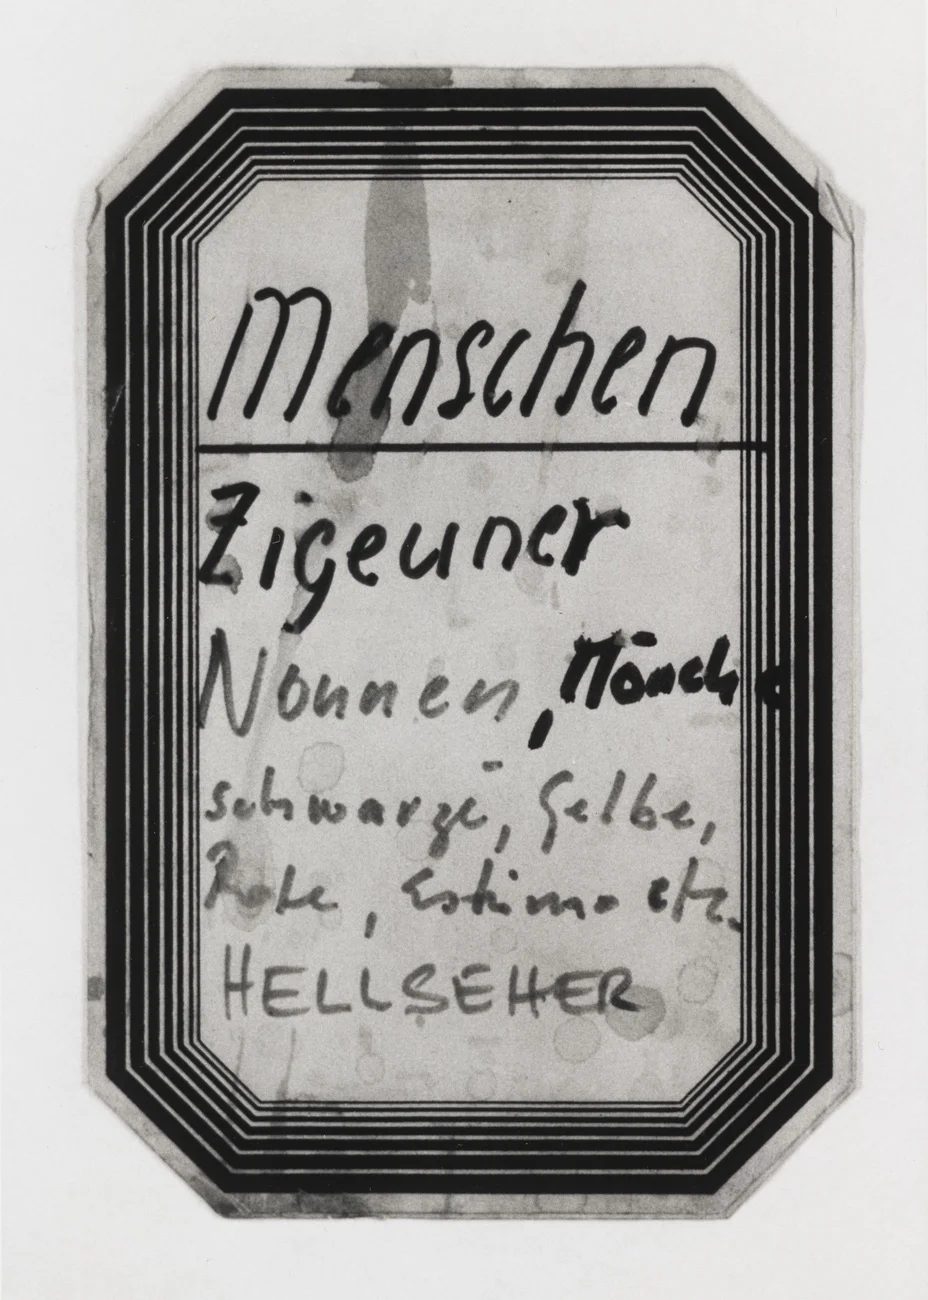 Menschen
Zigeuner
Nonnen, Mönche
schwarze, Gelbe,
Rote, Eskimo etc.
HELLSEHER